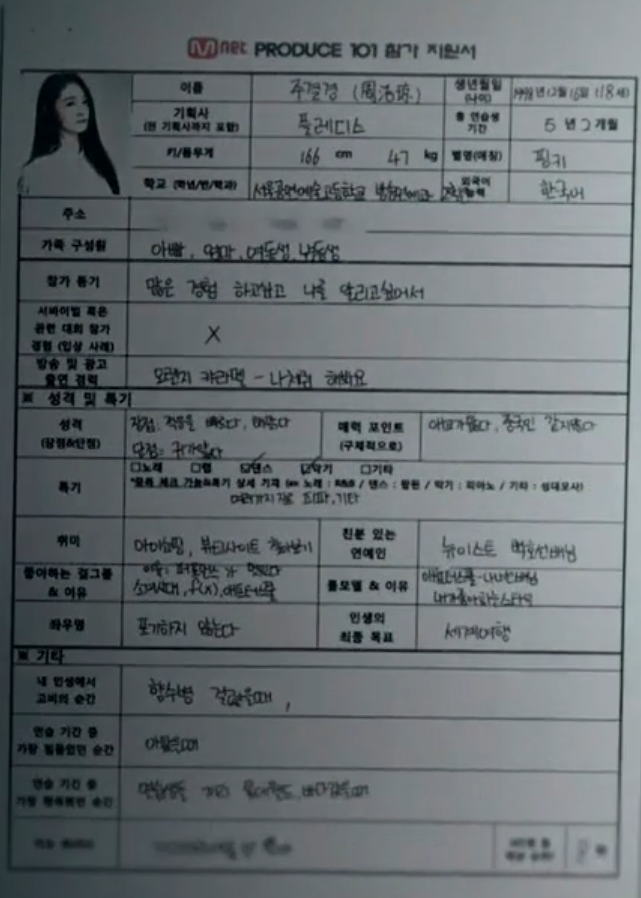 Mnet PRODUCE 101 참가 지원서
이름 주결경 (周洁琼) 생년월일 (나이) 1998년 12월 16일 (18세)
기획사 (전 기획사까지 포함) 플레디스 총 연습생 기간 5년 2개월
키/몸무게 166 cm 47 kg 별명(애칭) 핑키
학교 (학년/반/학과) 서울공연예술고등학교 방송연예과 외국어 능력 한국어
주소
가족 구성원 아빠, 엄마, 여동생, 남동생
참가 동기 많은 경험 하고싶고 나를 알리고싶어서
서바이벌 혹은 관련 대회 참가 경험 (입상 사례) X
방송 및 광고 출연 경력 오렌지 캬라멜 - 나처럼 해봐요
※ 성격 및 특기
성격 (장점&단점) 장점: 적응을 빠르다,
단점: 귀가얇다
매력 포인트 (구체적으로) 애교가많다, 중국인 같지않다
특기 □노래 □랩 ☑댄스 ☑악기 □기타
*중복 체크 가능&특기 상세 기재 (ex 노래 : R&B / 댄스 : 팝핀 / 악기 : 피아노 / 기타 : 성대모사)
여러가지 장르 피파, 기타
취미 아이쇼핑, 뷰티사이트 찾아보기 친분 있는 연예인 뉴이스트 백호선배님
좋아하는 걸그룹 & 이유 이유: 퍼포먼스가 멋있다
소녀시대, f(x), 애프터스쿨
롤모델 & 이유 애프터스쿨-나나선배님
내가좋아하는스타일
좌우명 포기하지 않는다 인생의 최종 목표 세계여행
※ 기타
내 인생에서 고비의 순간 향수병 걸렸을때,
연습 기간 중 가장 힘들었던 순간 아팠을때
연습 기간 중 가장 행복했던 순간 연습생들 같이